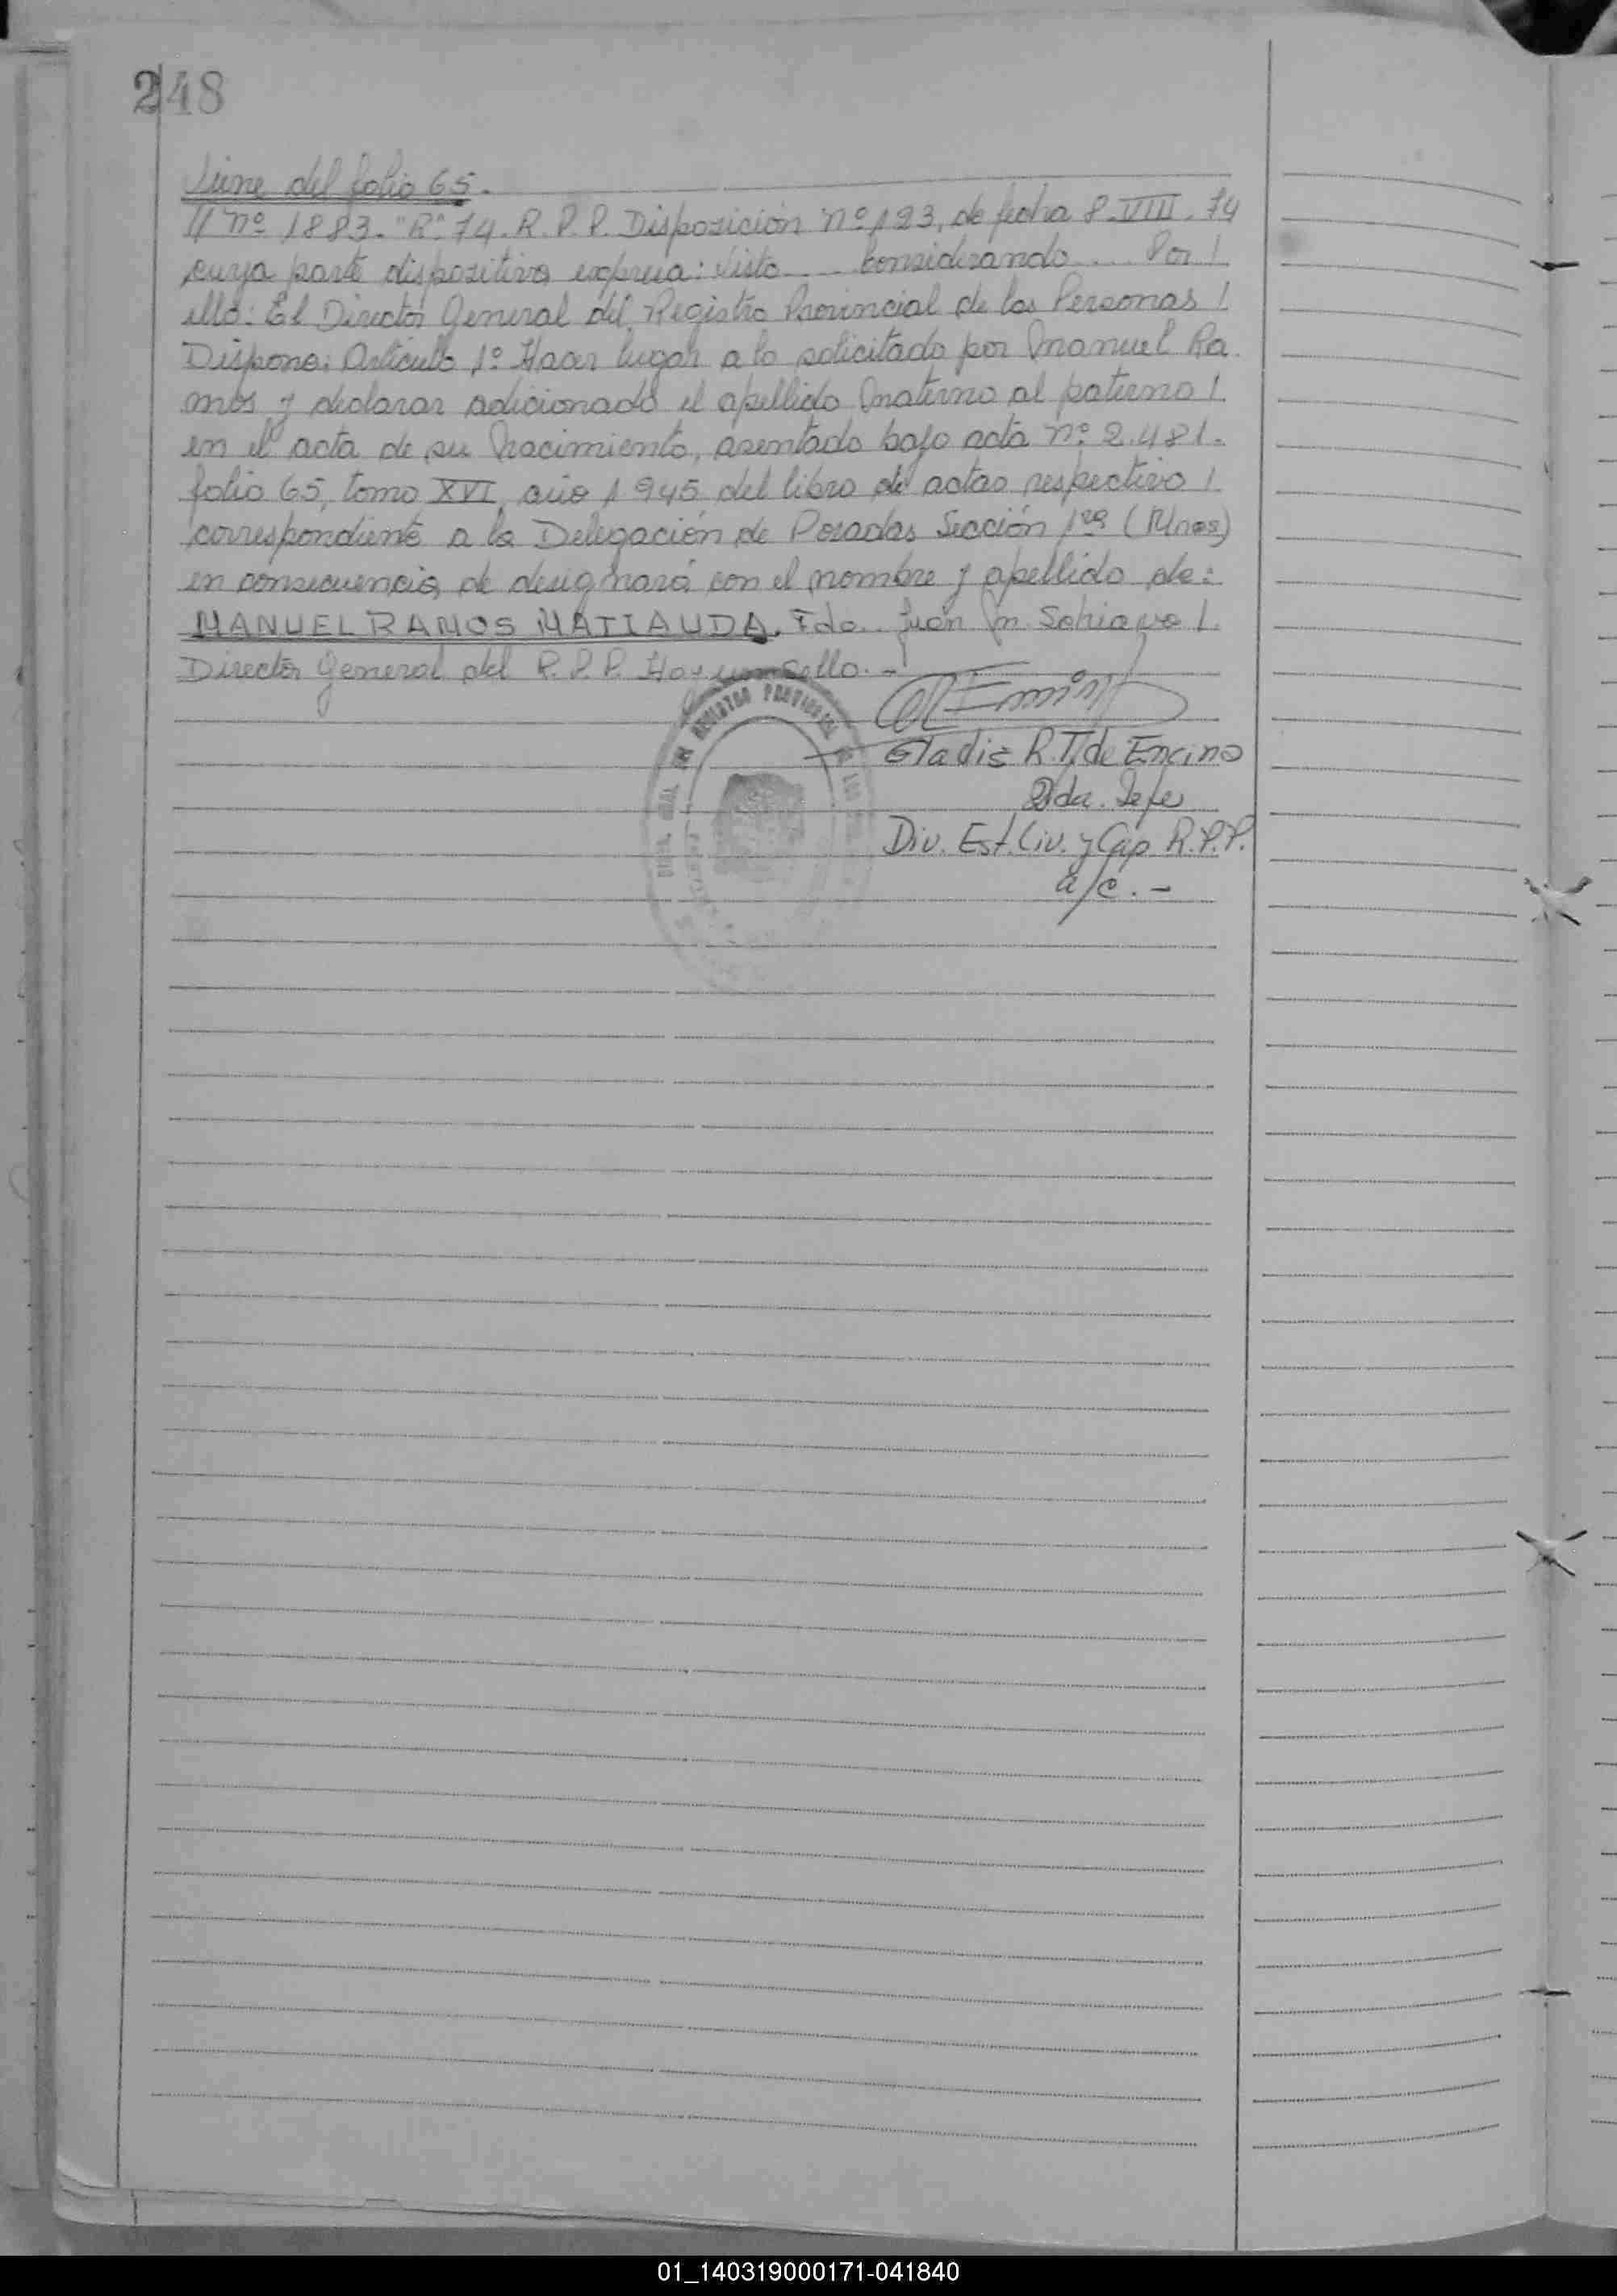 248
Viene del folio 65.
// nº 1883. "R". 74. R. P. P. Disposición nº 193, de fecha 8. VIII. 74
cuya parte dispositiva expresa: Visto .... Considerando .... Por /
ello: El Director General del Registro Provincial de las Personas /
Dispone: Artículo 1º Hacer lugar a lo solicitado por Manuel Ra
mos y declarar adicionado el apellido materno al paterno /
en el acta de su Nacimiento, asentado bajo acta nº 2.481.
folio 65, tomo XVI, año 1945 del libro de actas respectivo /
correspondiente a la Delegación de Posadas Sección 1ra (Mnes)
en consecuencia, de designará con el nombre y apellido de:
MANUEL RAMOS MATIAUDA. Fdo. Juan M. Schiavo /.
Director General del R.P.P. Hay un sello. -
REGISTRO PROVINCIAL DE LAS
Gladis R. T. de Encina
2da. Jefe
Div. Est. Civ. y Cap. R.P.P.
a/c. -
01_140319000171-041840